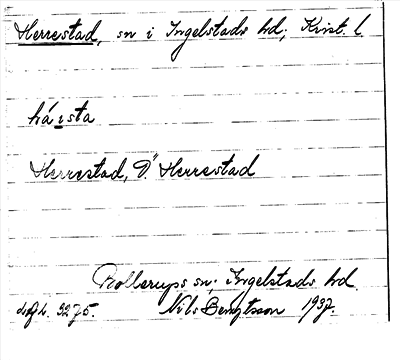 Herrestad, sn i Ingelstads hd, Krist. l.
hársta
Herrestad, D:o Herrestad
Rollerups sn, Ingelstads hd.
Nils Bengtsson 1937.